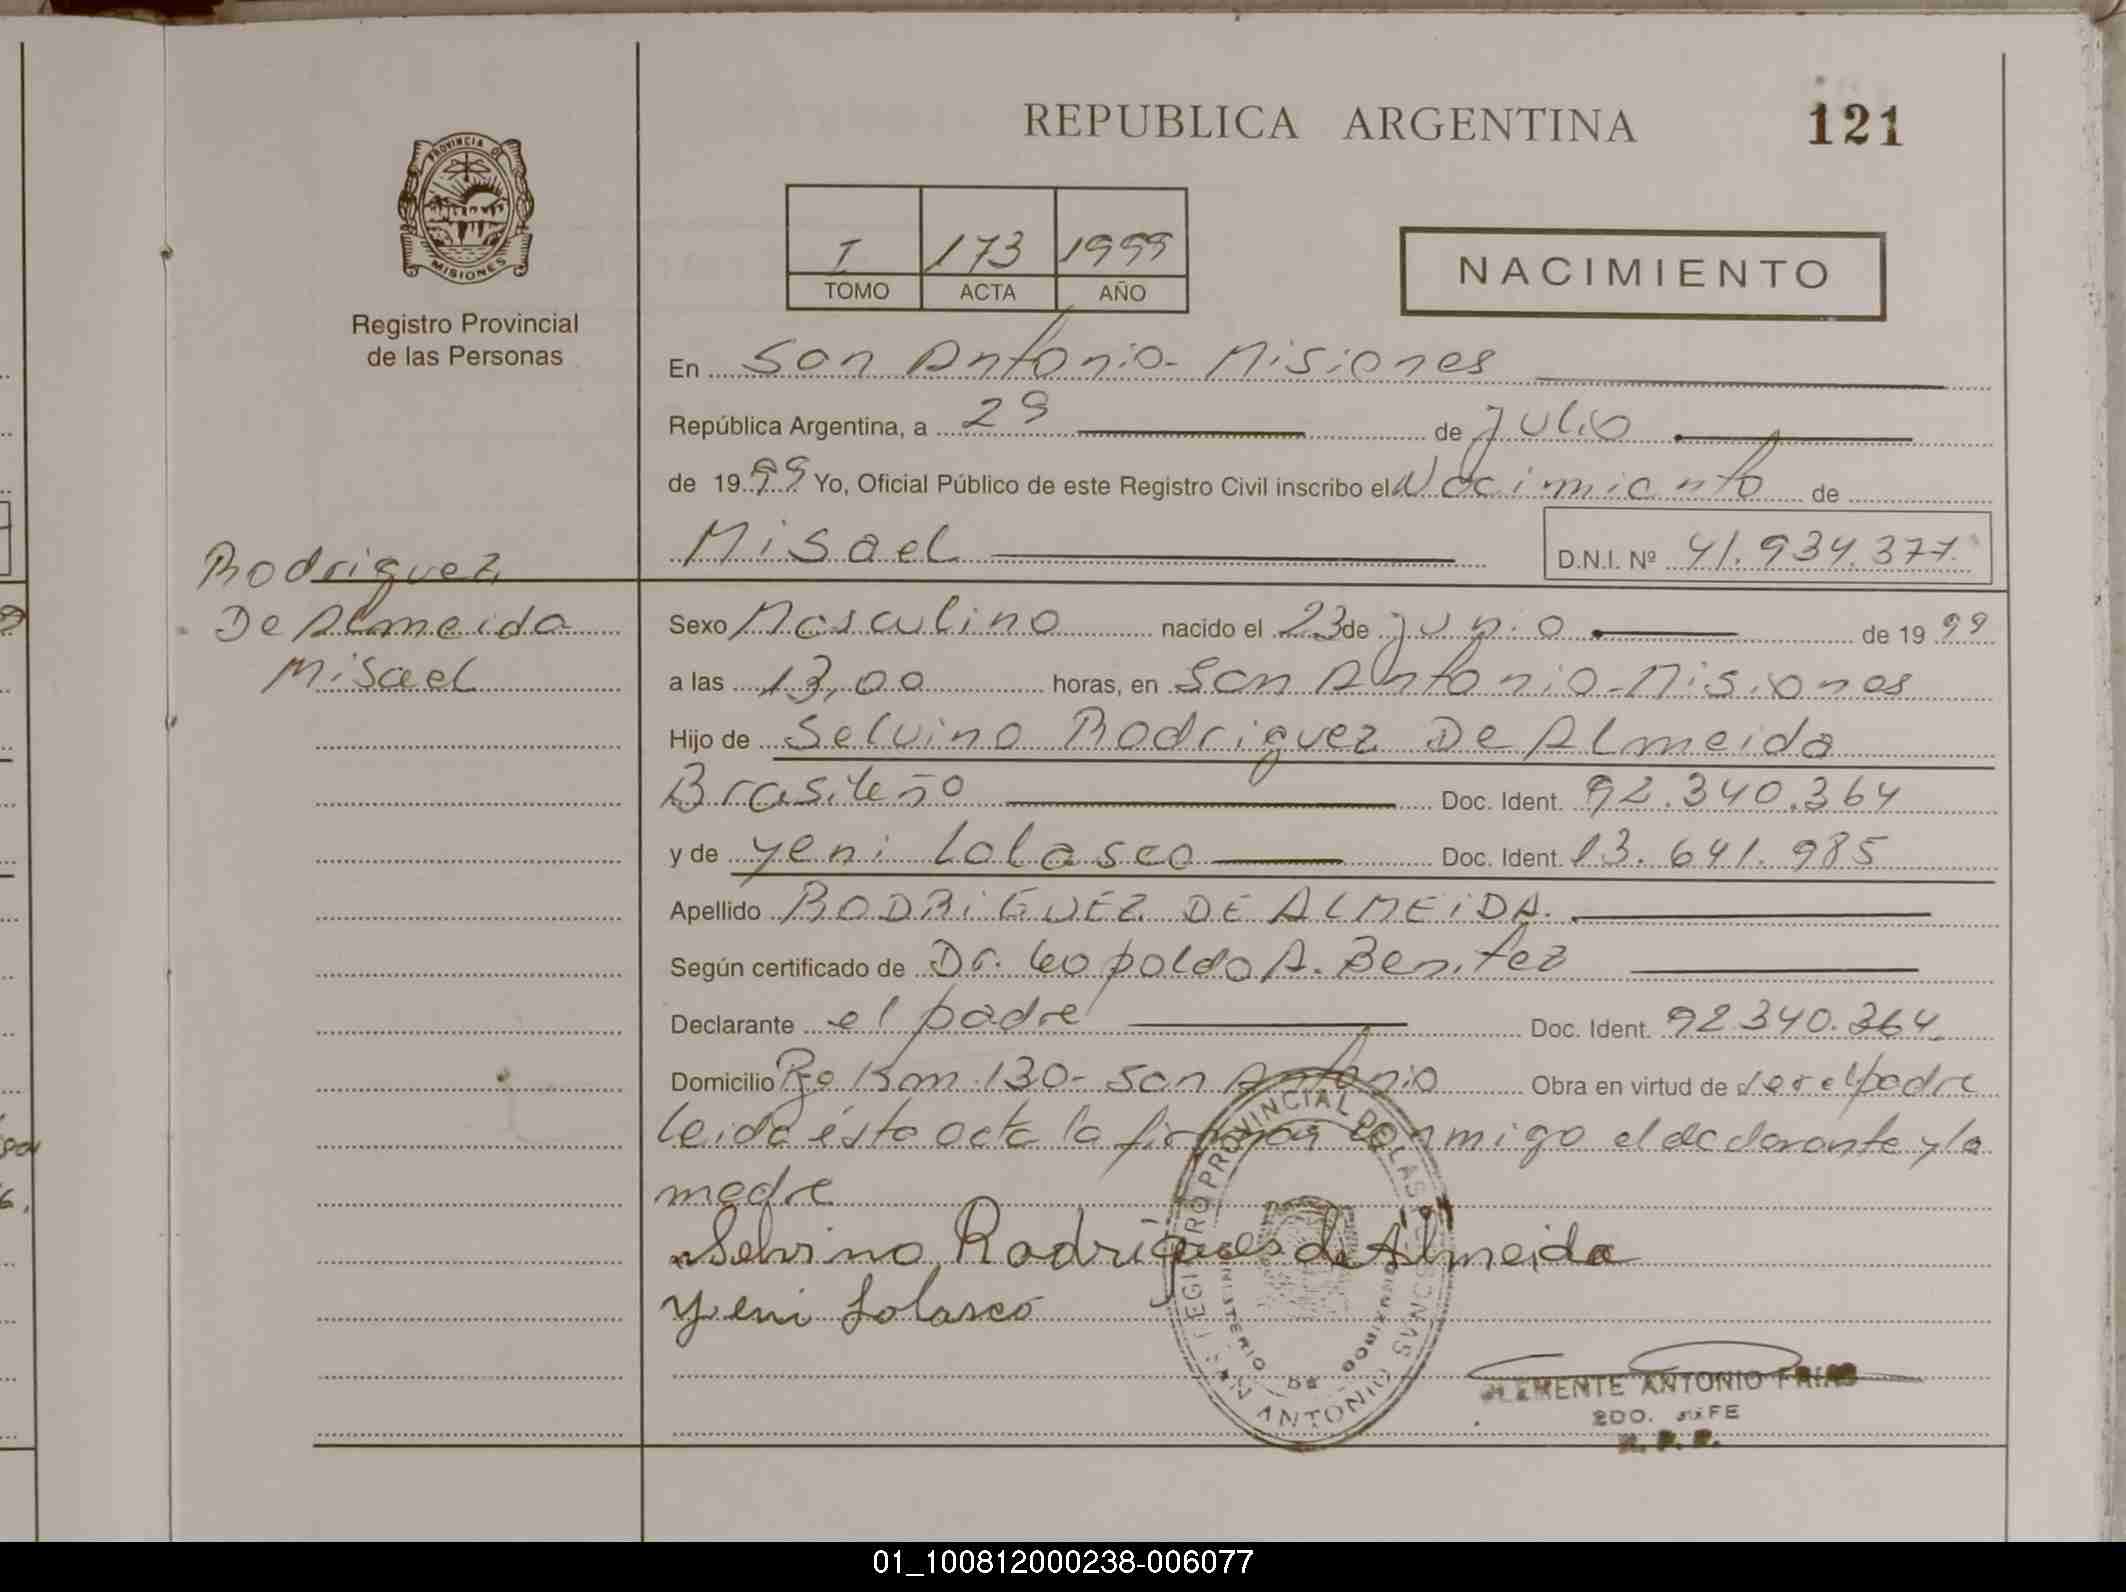 REPUBLICA ARGENTINA
121
PROVINCIA DE
MISIONES
Registro Provincial
de las Personas
I 173 1999
TOMO ACTA AÑO
NACIMIENTO
En San Antonio - Misiones
República Argentina, a 29 de Julio
de 1999 Yo, Oficial Público de este Registro Civil inscribo el Nacimiento de
Misael D.N.I. Nº 41.934.377
Rodriguez
De Almeida
Misael
Sexo Masculino nacido el 23 de junio de 1999
a las 13,00 horas, en San Antonio - Misiones
Hijo de Selvino Rodriguez De Almeida
Brasileño Doc. Ident. 92.340.364
y de Yeni Lolasco Doc. Ident. 13.641.985
Apellido RODRIGUEZ DE ALMEIDA.
Según certificado de Dr. Leopoldo A. Benitez
Declarante el padre Doc. Ident. 92.340.364
Domicilio Pje Km 130 - San Antonio Obra en virtud de ser el padre
Leida ésta acta la firman conmigo el declarante y la
madre
Selvino Rodrigues de Almeida
Yeni Lolasco
REGISTRO PROVINCIAL DE LAS PERSONAS
SAN ANTONIO
MINISTERIO DE GOBIERNO
CLEMENTE ANTONIO FRIAS
2DO. JEFE
R. P. P.
01_100812000238-006077